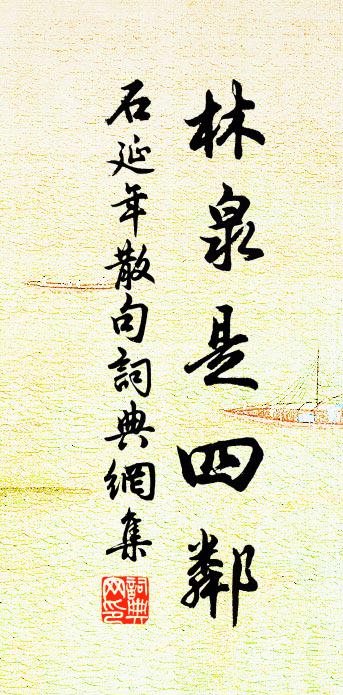 林泉是四鄰
石延年散句詞典網集
詞典網印